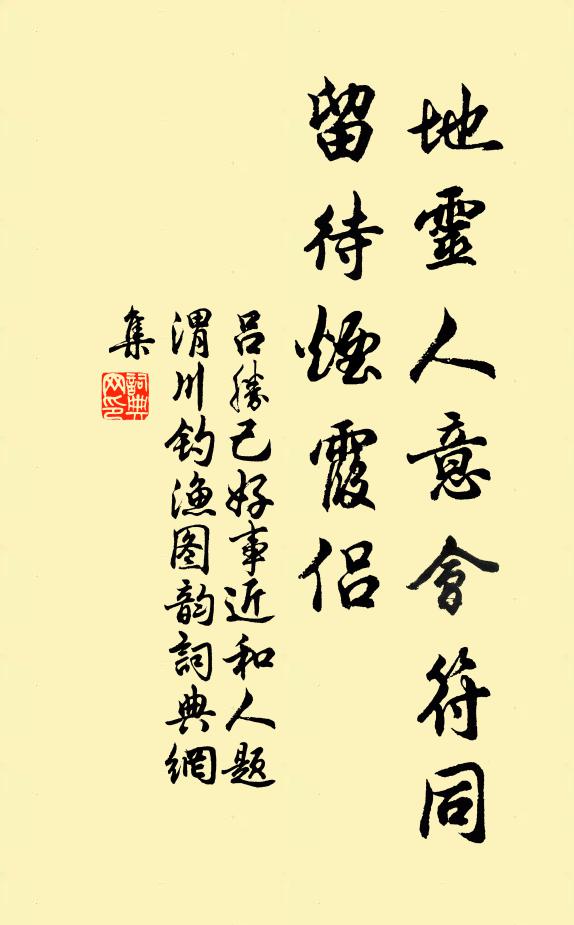 地靈人意會符同
留待煙霞侣
吕勝己好事近和人题
渭川钓漁图韵詞典網
集
詞典网印